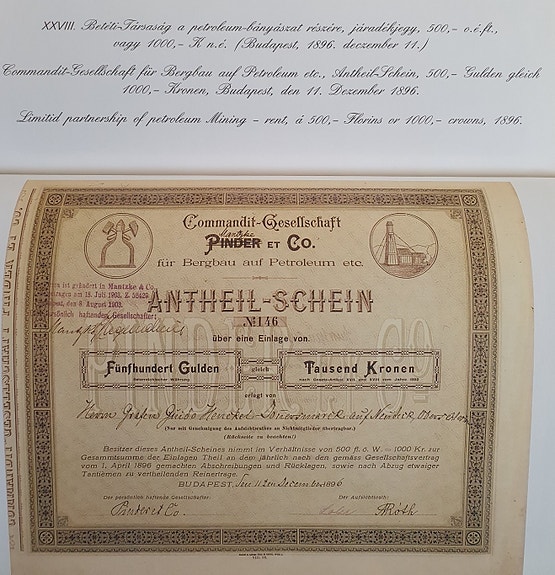 XXVIII. Betéti-Társaság a petroleum-bányászat részére, járadékjegy, 500,- o.é.ft.,
vagy 1000,- K n.é. (Budapest, 1896. deczember 11.)
Commandit-Gesellschaft für Bergbau auf Petroleum etc., Antheil-Schein, 500,- Gulden gleich
1000,- Kronen, Budapest, den 11. Dezember 1896.
Limitid partnership of petroleum Mining - rent, á 500,- Florins or 1000,- crowns, 1896.
Commandit-Gesellschaft
Mantzke
PINDER ET Co.
für Bergbau auf Petroleum etc.
ist geändert in Mantzke & Co.
am 15. Juli 1903, Z. 55429
den 8. August 1903.
persönlich haftenden Gesellschafter:
ANTHEIL-SCHEIN
No 146
über eine Einlage von
Fünfhundert Gulden
österreichischer Währung
gleich
Tausend Kronen
nach Gesetz-Artikel XVII und XVIII vom Jahre 1892
erlegt von
Herrn Grafen Guido Henckel Donnersmarck auf Neudeck
(Nur mit Genehmigung des Aufsichtsrathes an Nichtmitglieder übertragbar.)
(Rückseite zu beachten!)
Besitzer dieses Antheil-Scheines nimmt im Verhältnisse von 500 fl. ö. W. = 1000 Kr. zur
Gesammtsumme der Einlagen Theil an dem jährlich nach den gemäss Gesellschaftsvertrag
vom 1. April 1896 gemachten Abschreibungen und Rücklagen, sowie nach Abzug etwaiger
Tantièmen zu vertheilenden Reinertrage.
BUDAPEST, den 11. Dezember 1896
Der persönlich haftende Gesellschafter:
Der Aufsichtsrath:
Pinder et Co.
Roth